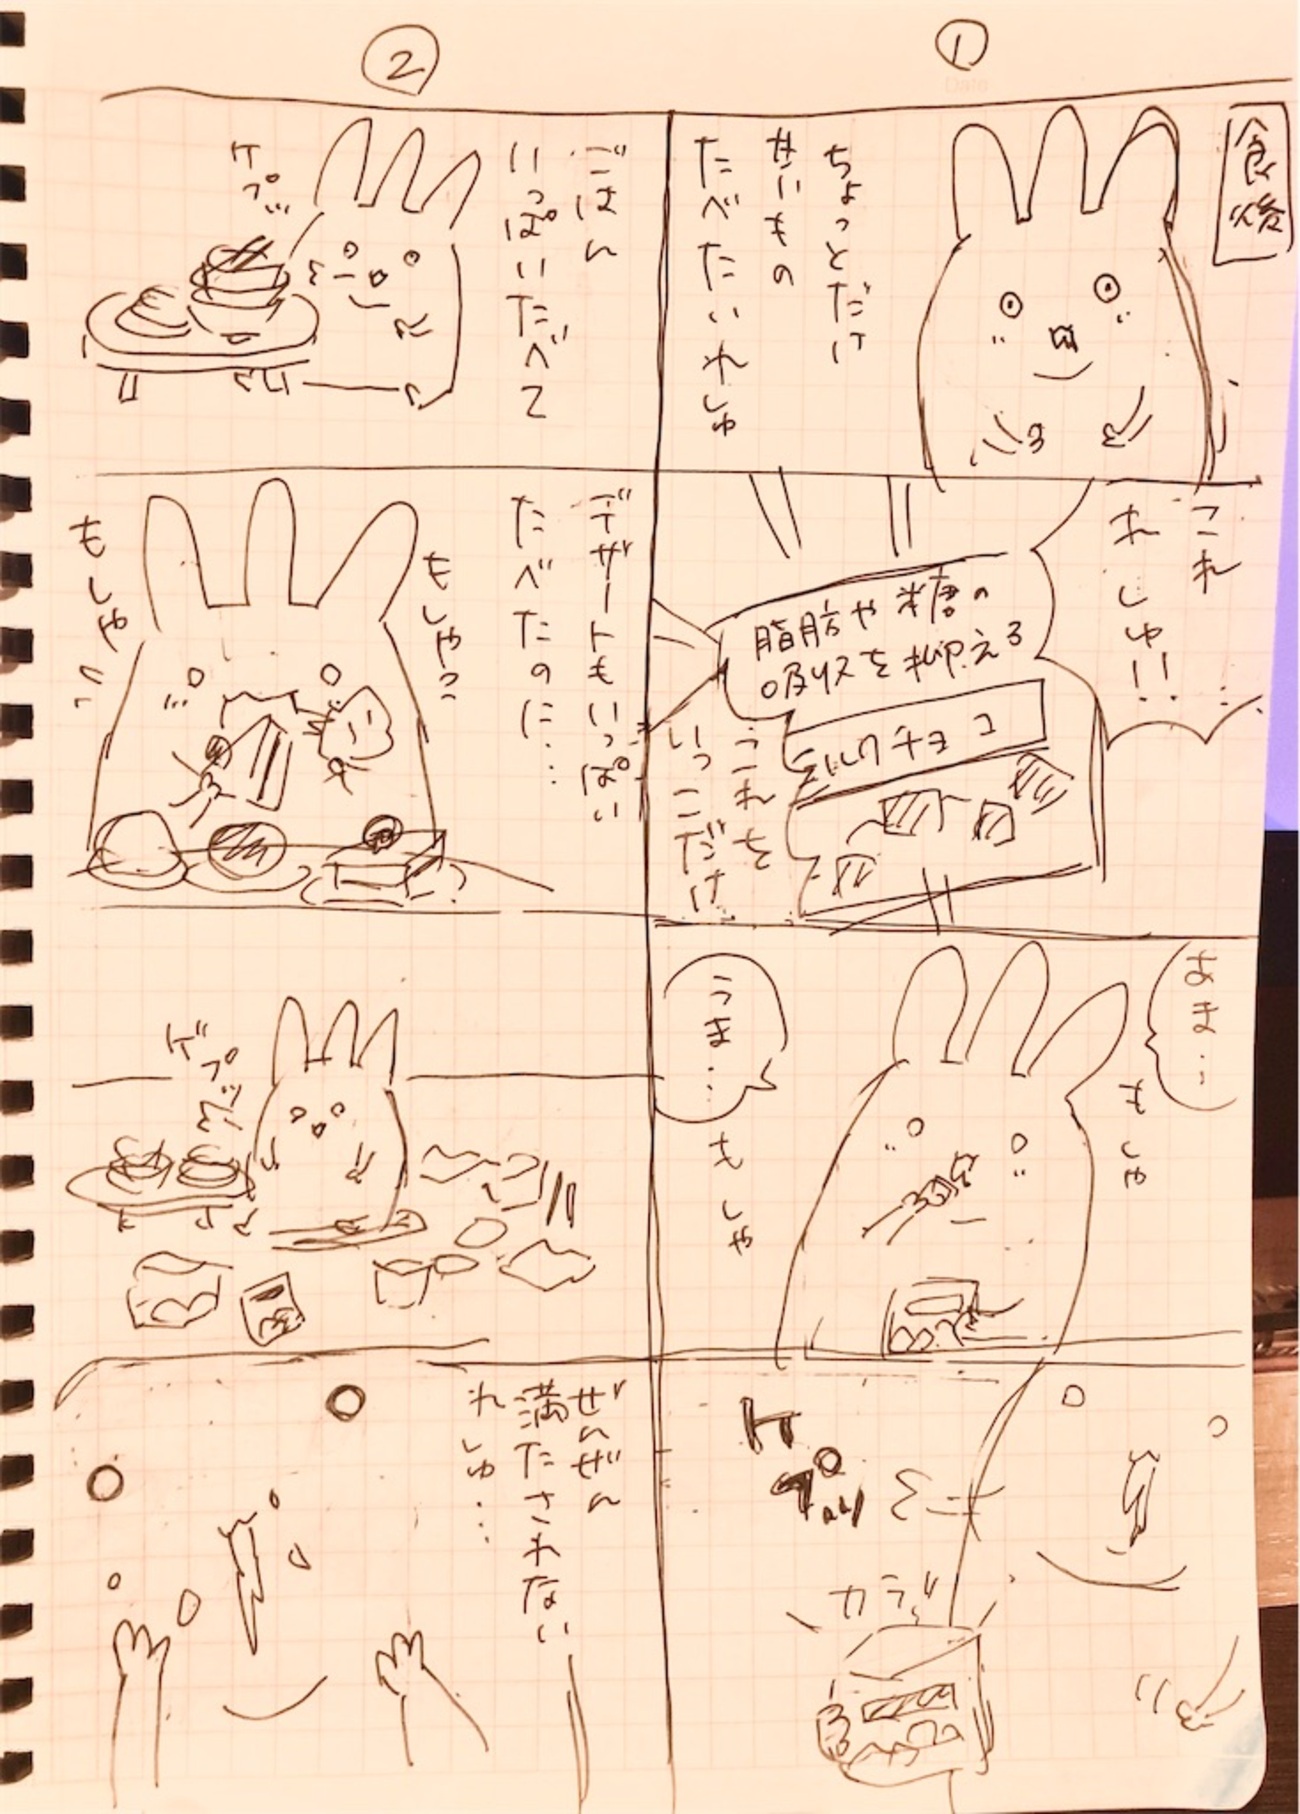 ①
食後
ちょっとだけ
甘いもの
たべたいれしゅ
これ
れしゅ!!
脂肪や糖の
吸収を抑える
ミルクチョコ
これを
いっこだけ
あま…
もしゃ
うま…
もしゃ
ゲプッ
カラッ
②
ごはん
いっぱいたべて
ケプ…
デザートもいっぱい
たべたのに…
もしゃ
もしゃ
ゲプッ
ぜんぜん
満たされない
れしゅ…